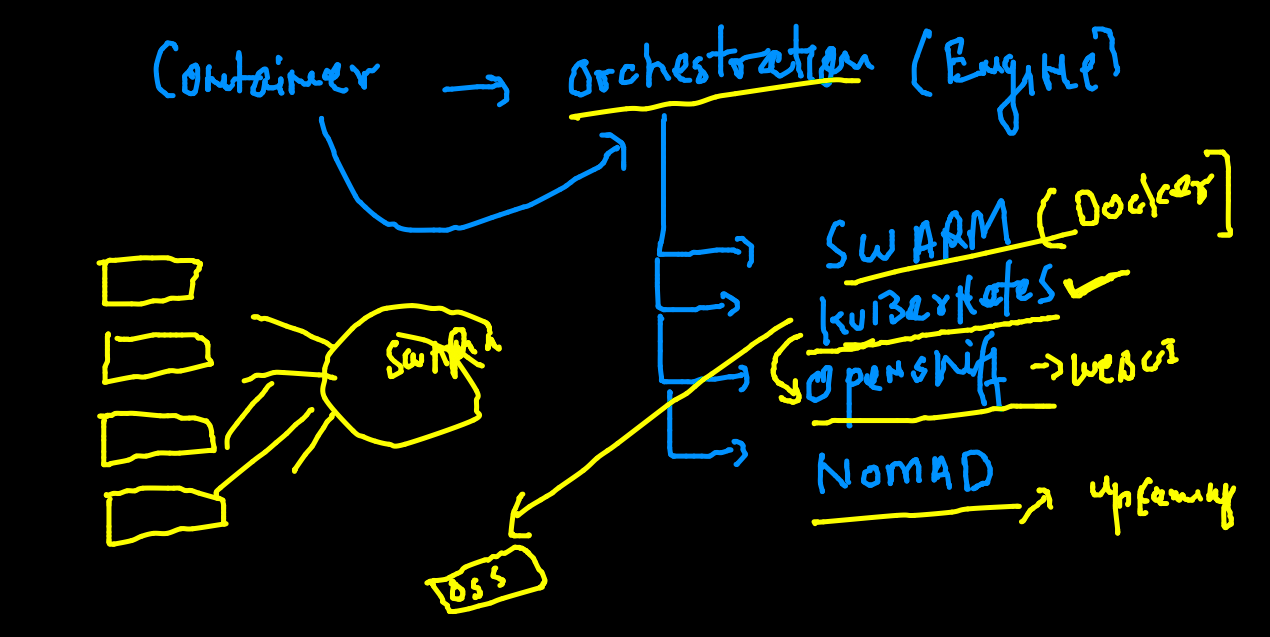 Container → Orchestration (Engine]
SWARM (Docker]
KuBerNetes ✓
Openshift → WEBUI
NOMAD
Swarm
OSS